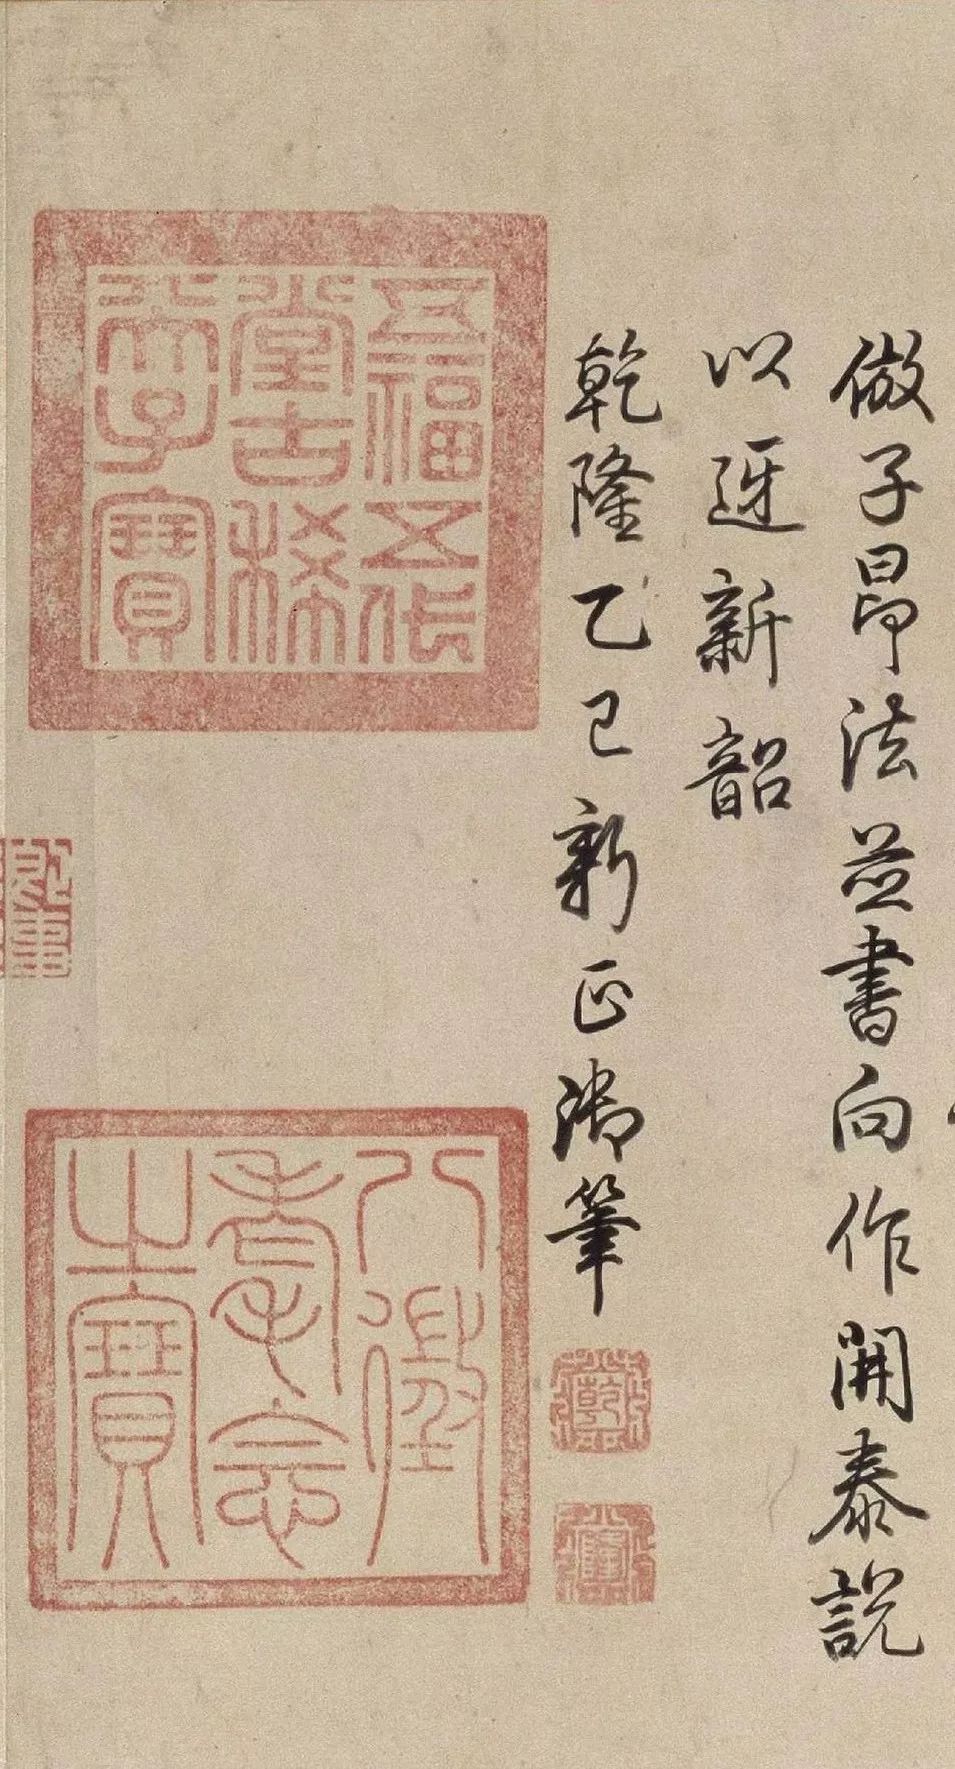 倣子昂法並書向作開泰說
以迓新韶
乾隆乙巳新正御筆
乾
隆
五福五代堂古稀天子寶
八徵耄念之寶